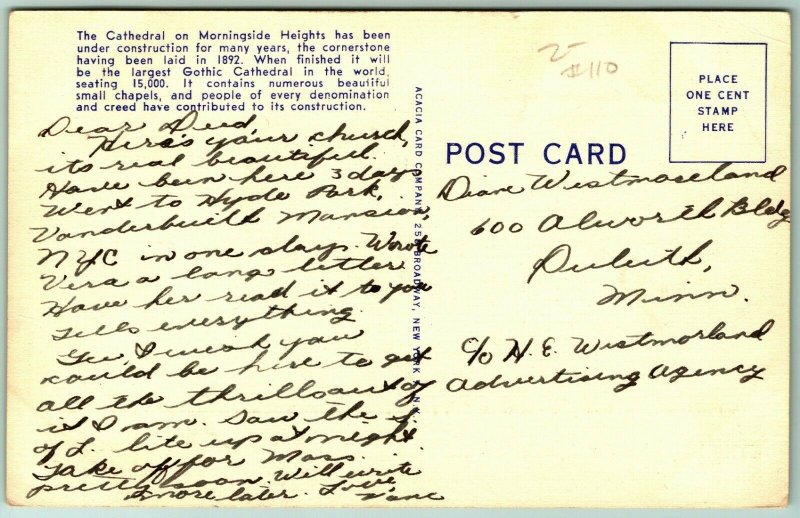 The Cathedral on Morningside Heights has been
under construction for many years, the cornerstone
having been laid in 1892. When finished it will
be the largest Gothic Cathedral in the world,
seating 15,000. It contains numerous beautiful
small chapels, and people of every denomination
and creed have contributed to its construction.
Dear Deed,
Here's your church,
its real beautiful.
Have been here 3 days
Went to Hyde Park,
Vanderbuilt Mansion,
NYC in one day. Wrote
Vera a long letter
Have her read it to you
Tells everything.
Gee I wish you
could be here to get
all the thrills out of
it I am. Saw the S.
of L. lite up at night.
Take off for Mass.
pretty soon. Will write
more later. Love,
ACACIA CARD COMPANY, 258 BROADWAY, NEW YORK 7, N.Y.
2-
#110
PLACE
ONE CENT
STAMP
HERE
POST CARD
Diane Westmoreland
600 Alworth Bldg
Duluth,
Minn.
c/o H. E. Westmorland
Advertising Agency